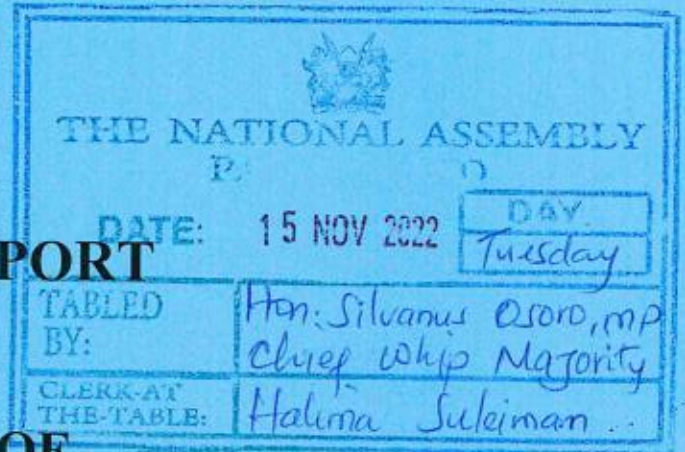 THE NATIONAL ASSEMBLY
DATE: 15 NOV 2022 DAY.
Tuesday
PORT
TABLED BY: Hon: Silvanus Osoro, MP
Chief Whip Majority
CLERK-AT THE-TABLE: Halima Suleiman..
OF